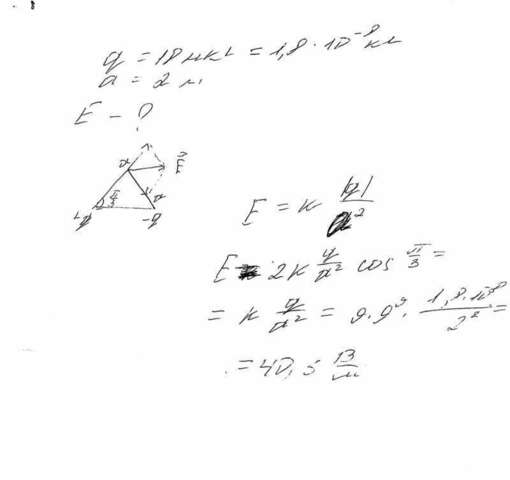 q = 18 мкл = 1,8 · 10⁻⁸ кл
a = 2 м
E - ?
a
E
π/3
a
+q
-q
E = k |q|/a²
E = 2k q/a² cos π/3 =
= k q/a² = 9·9⁹ · 1,8·10⁻⁸/2² =
= 40,5 В/м